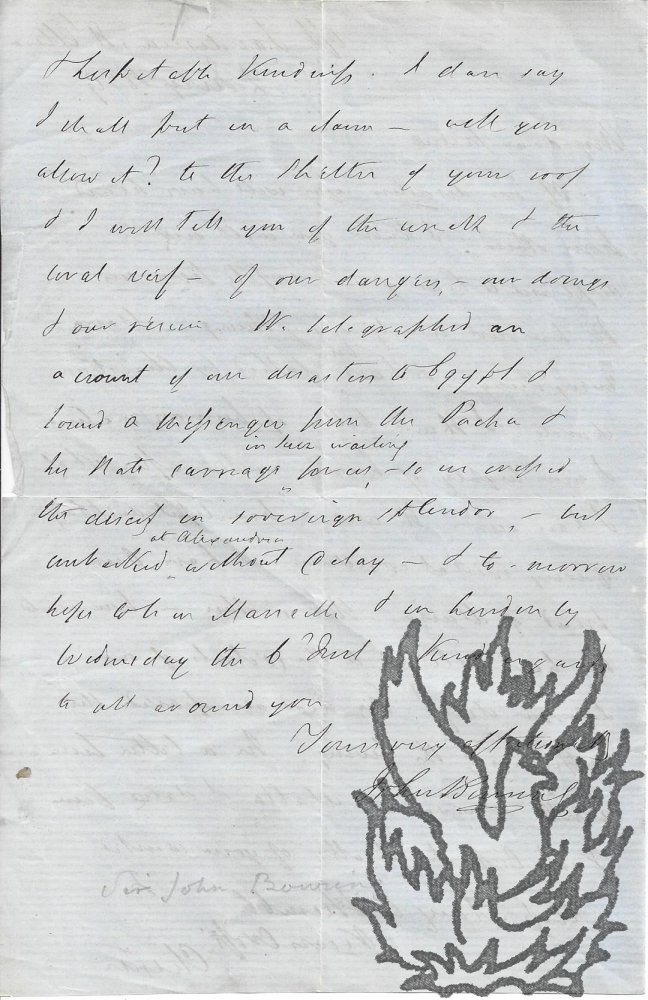 & hospitable Kindness. I dare say
I shall put in a claim – will you
allow it? to the shelter of your roof
& I will tell you of the wreck & the
coral reef – of our dangers, – our doings
& our rescue We telegraphed an
account of our disasters to Egypt &
found a Messenger from the Pacha &
in waiting
his State carriage for us, – so we crossed
the desert in sovereign splendor, – but
at Alexandria
embarked without delay – & to-morrow
hope to be in Marseille & in London by
Wednesday the 6 Kind regards
to all around you
Yours very affectionately
John Bowring
Sir John Bowring